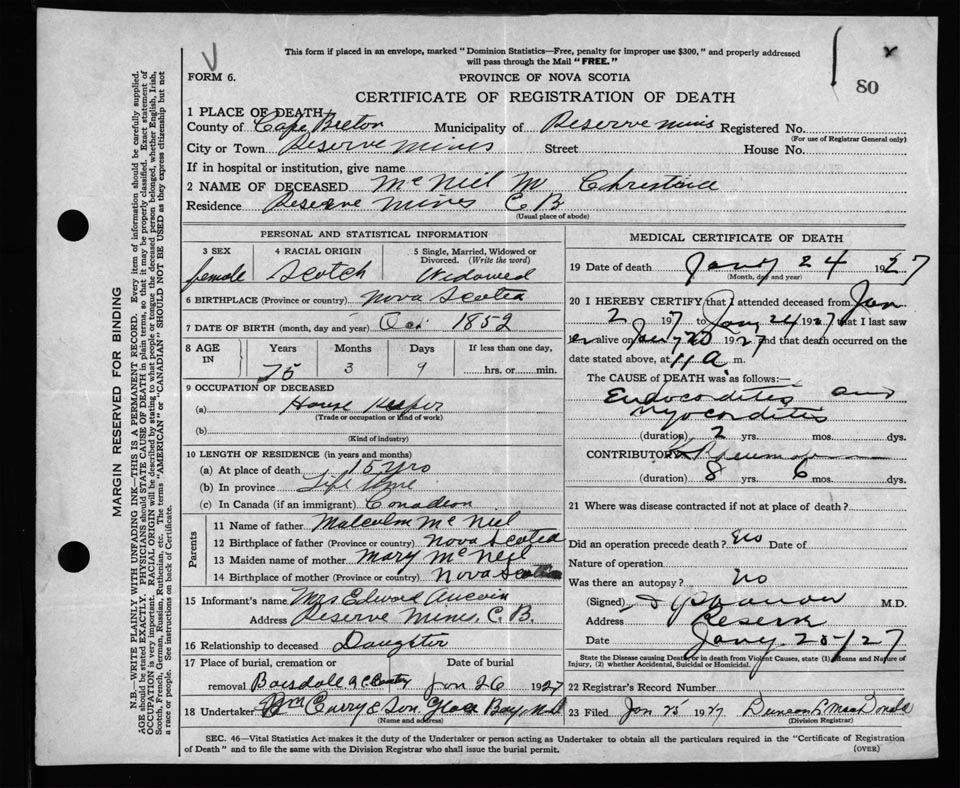 This form if placed in an envelope, marked "Dominion Statistics—Free, penalty for improper use $300," and properly addressed
will pass through the Mail "FREE."
FORM 6.
PROVINCE OF NOVA SCOTIA
80
CERTIFICATE OF REGISTRATION OF DEATH
1 PLACE OF DEATH
County of Cape Breton Municipality of Reserve mines Registered No.
(For use of Registrar General only)
City or Town Reserve mines Street House No.
If in hospital or institution, give name
2 NAME OF DECEASED McNeil M Christina
Residence Reserve Mines C B
(Usual place of abode)
PERSONAL AND STATISTICAL INFORMATION
3 SEX 4 RACIAL ORIGIN 5 Single, Married, Widowed or
Divorced. (Write the word)
female Scotch Widowed
6 BIRTHPLACE (Province or country) Nova Scotia
7 DATE OF BIRTH (month, day and year) Oct 1852
8 AGE IN Years Months Days If less than one day,
75 3 9 hrs. or min.
9 OCCUPATION OF DECEASED
(a) House Keeper
(Trade or occupation or kind of work)
(b)
(Kind of industry)
10 LENGTH OF RESIDENCE (in years and months)
(a) At place of death 15 yrs
(b) In province Life time
(c) In Canada (if an immigrant) Canadian
Parents
11 Name of father Malcolm McNeil
12 Birthplace of father (Province or country) Nova Scotia
13 Maiden name of mother Mary McNeil
14 Birthplace of mother (Province or country) Nova Scotia
15 Informant's name Mrs Edward Aucoin
Address Reserve Mines, C. B.
16 Relationship to deceased Daughter
17 Place of burial, cremation or Date of burial
removal Boisdale Jan 26 1927
18 Undertaker Wm Curry & Son, Glace Bay, N.S.
(Name and address)
MEDICAL CERTIFICATE OF DEATH
19 Date of death Jany 24 1927
(Month, day and year)
20 I HEREBY CERTIFY that I attended deceased from Jan
2 1927 to Jany 24 1927 that I last saw
her alive on Jany 20 1927 and that death occurred on the
date stated above, at 11 a m.
The CAUSE of DEATH was as follows:—
Endocorditis and
Myocorditis
(duration) 2 yrs. mos. dys.
CONTRIBUTORY
(duration) 8 yrs. 6 mos. dys.
21 Where was disease contracted if not at place of death?
Did an operation precede death? No Date of
Nature of operation
Was there an autopsy? no
(Signed) M.D.
Address Reserve
Date Jany 25/27
State the Disease causing Death, or in death from Violent Causes, state (1) Means and Nature of
Injury, (2) whether Accidental, Suicidal or Homicidal.
22 Registrar's Record Number
23 Filed Jan 25 1927 Duncan P MacDonald
(Division Registrar)
SEC. 46—Vital Statistics Act makes it the duty of the Undertaker or person acting as Undertaker to obtain all the particulars required in the "Certificate of Registration
of Death" and to file the same with the Division Registrar who shall issue the burial permit.
(OVER)
MARGIN RESERVED FOR BINDING
N.B.—WRITE PLAINLY WITH UNFADING INK—THIS IS A PERMANENT RECORD. Every item of information should be carefully supplied.
AGE should be stated EXACTLY. PHYSICIANS should STATE CAUSE OF DEATH in plain terms, so that it may be properly classified. Exact statement of
OCCUPATION is very important. RACIAL ORIGIN will be described by stating to what people or tongue the deceased person belonged, whether English, Irish,
Scotch, French, German, Russian, Ruthenian, etc. The terms "AMERICAN" or "CANADIAN" SHOULD NOT BE USED as they express citizenship but not
a race or people. See instructions on back of Certificate.